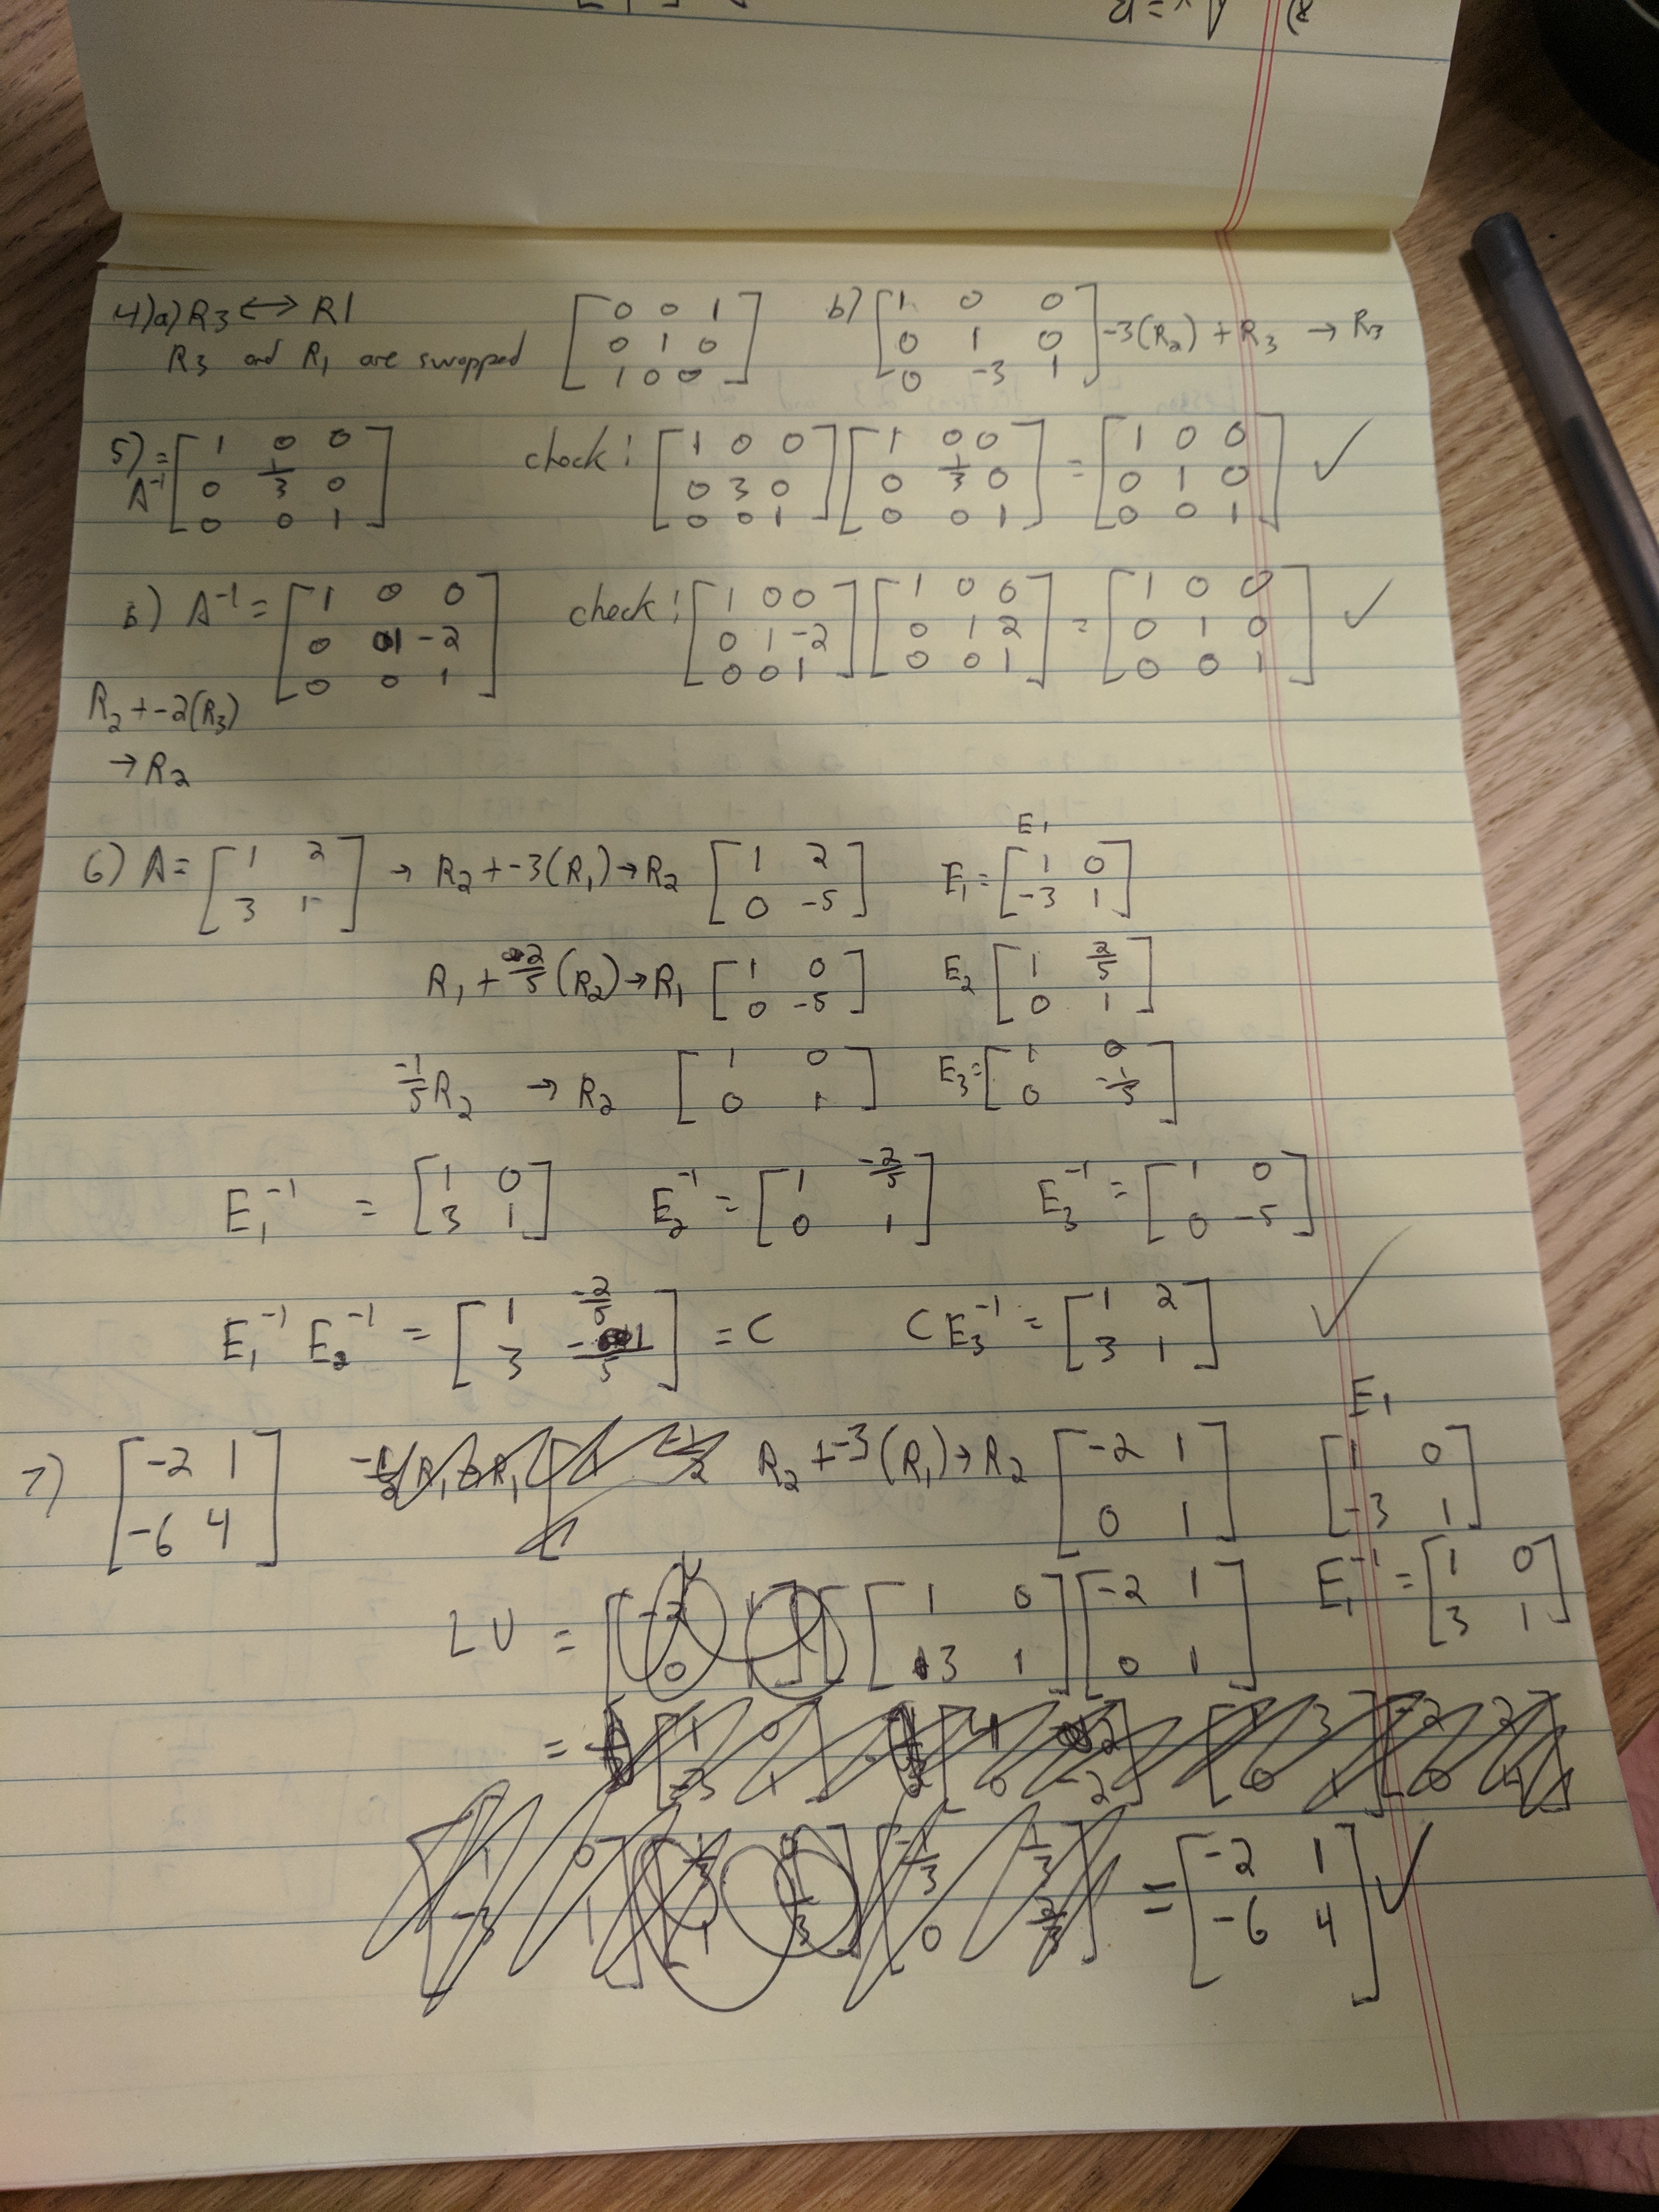 4)a) R3 ↔ R1 [0 0 1; 0 1 0; 1 0 0] b) [1 0 0; 0 1 0; 0 -3 1] -3(R2) + R3 → R3
R3 and R1 are swapped
5) A^-1 = [1 0 0; 0 1/3 0; 0 0 1] check: [1 0 0; 0 3 0; 0 0 1] [1 0 0; 0 1/3 0; 0 0 1] = [1 0 0; 0 1 0; 0 0 1] ✓
b) A^-1 = [1 0 0; 0 1 -2; 0 0 1] check: [1 0 0; 0 1 -2; 0 0 1] [1 0 0; 0 1 2; 0 0 1] = [1 0 0; 0 1 0; 0 0 1] ✓
R2 + -2(R3)
→ R2
E1
6) A = [1 2; 3 1] → R2 + -3(R1) → R2 [1 2; 0 -5] E1 = [1 0; -3 1]
R1 + 2/5 (R2) → R1 [1 0; 0 -5] E2 [1 2/5; 0 1]
-1/5 R2 → R2 [1 0; 0 1] E3 = [1 0; 0 -1/5]
E1^-1 = [1 0; 3 1] E2^-1 = [1 -2/5; 0 1] E3^-1 = [1 0; 0 -5]
E1^-1 E2^-1 = [1 -2/5; 3 -1/5] = C C E3^-1 = [1 2; 3 1] ✓
E1
7) [-2 1; -6 4] R2 + -3(R1) → R2 [-2 1; 0 1] [1 0; -3 1]
LU = [1 0; 3 1] [-2 1; 0 1] E1^-1 = [1 0; 3 1]
= [-2 1; -6 4] ✓